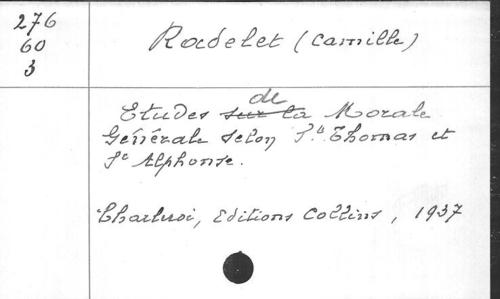 276
60
3
Radelet (Camille)
Etudes de Morale
Générale selon St Thomas et
St Alphonse.
Charleroi, Editions Collins, 1937